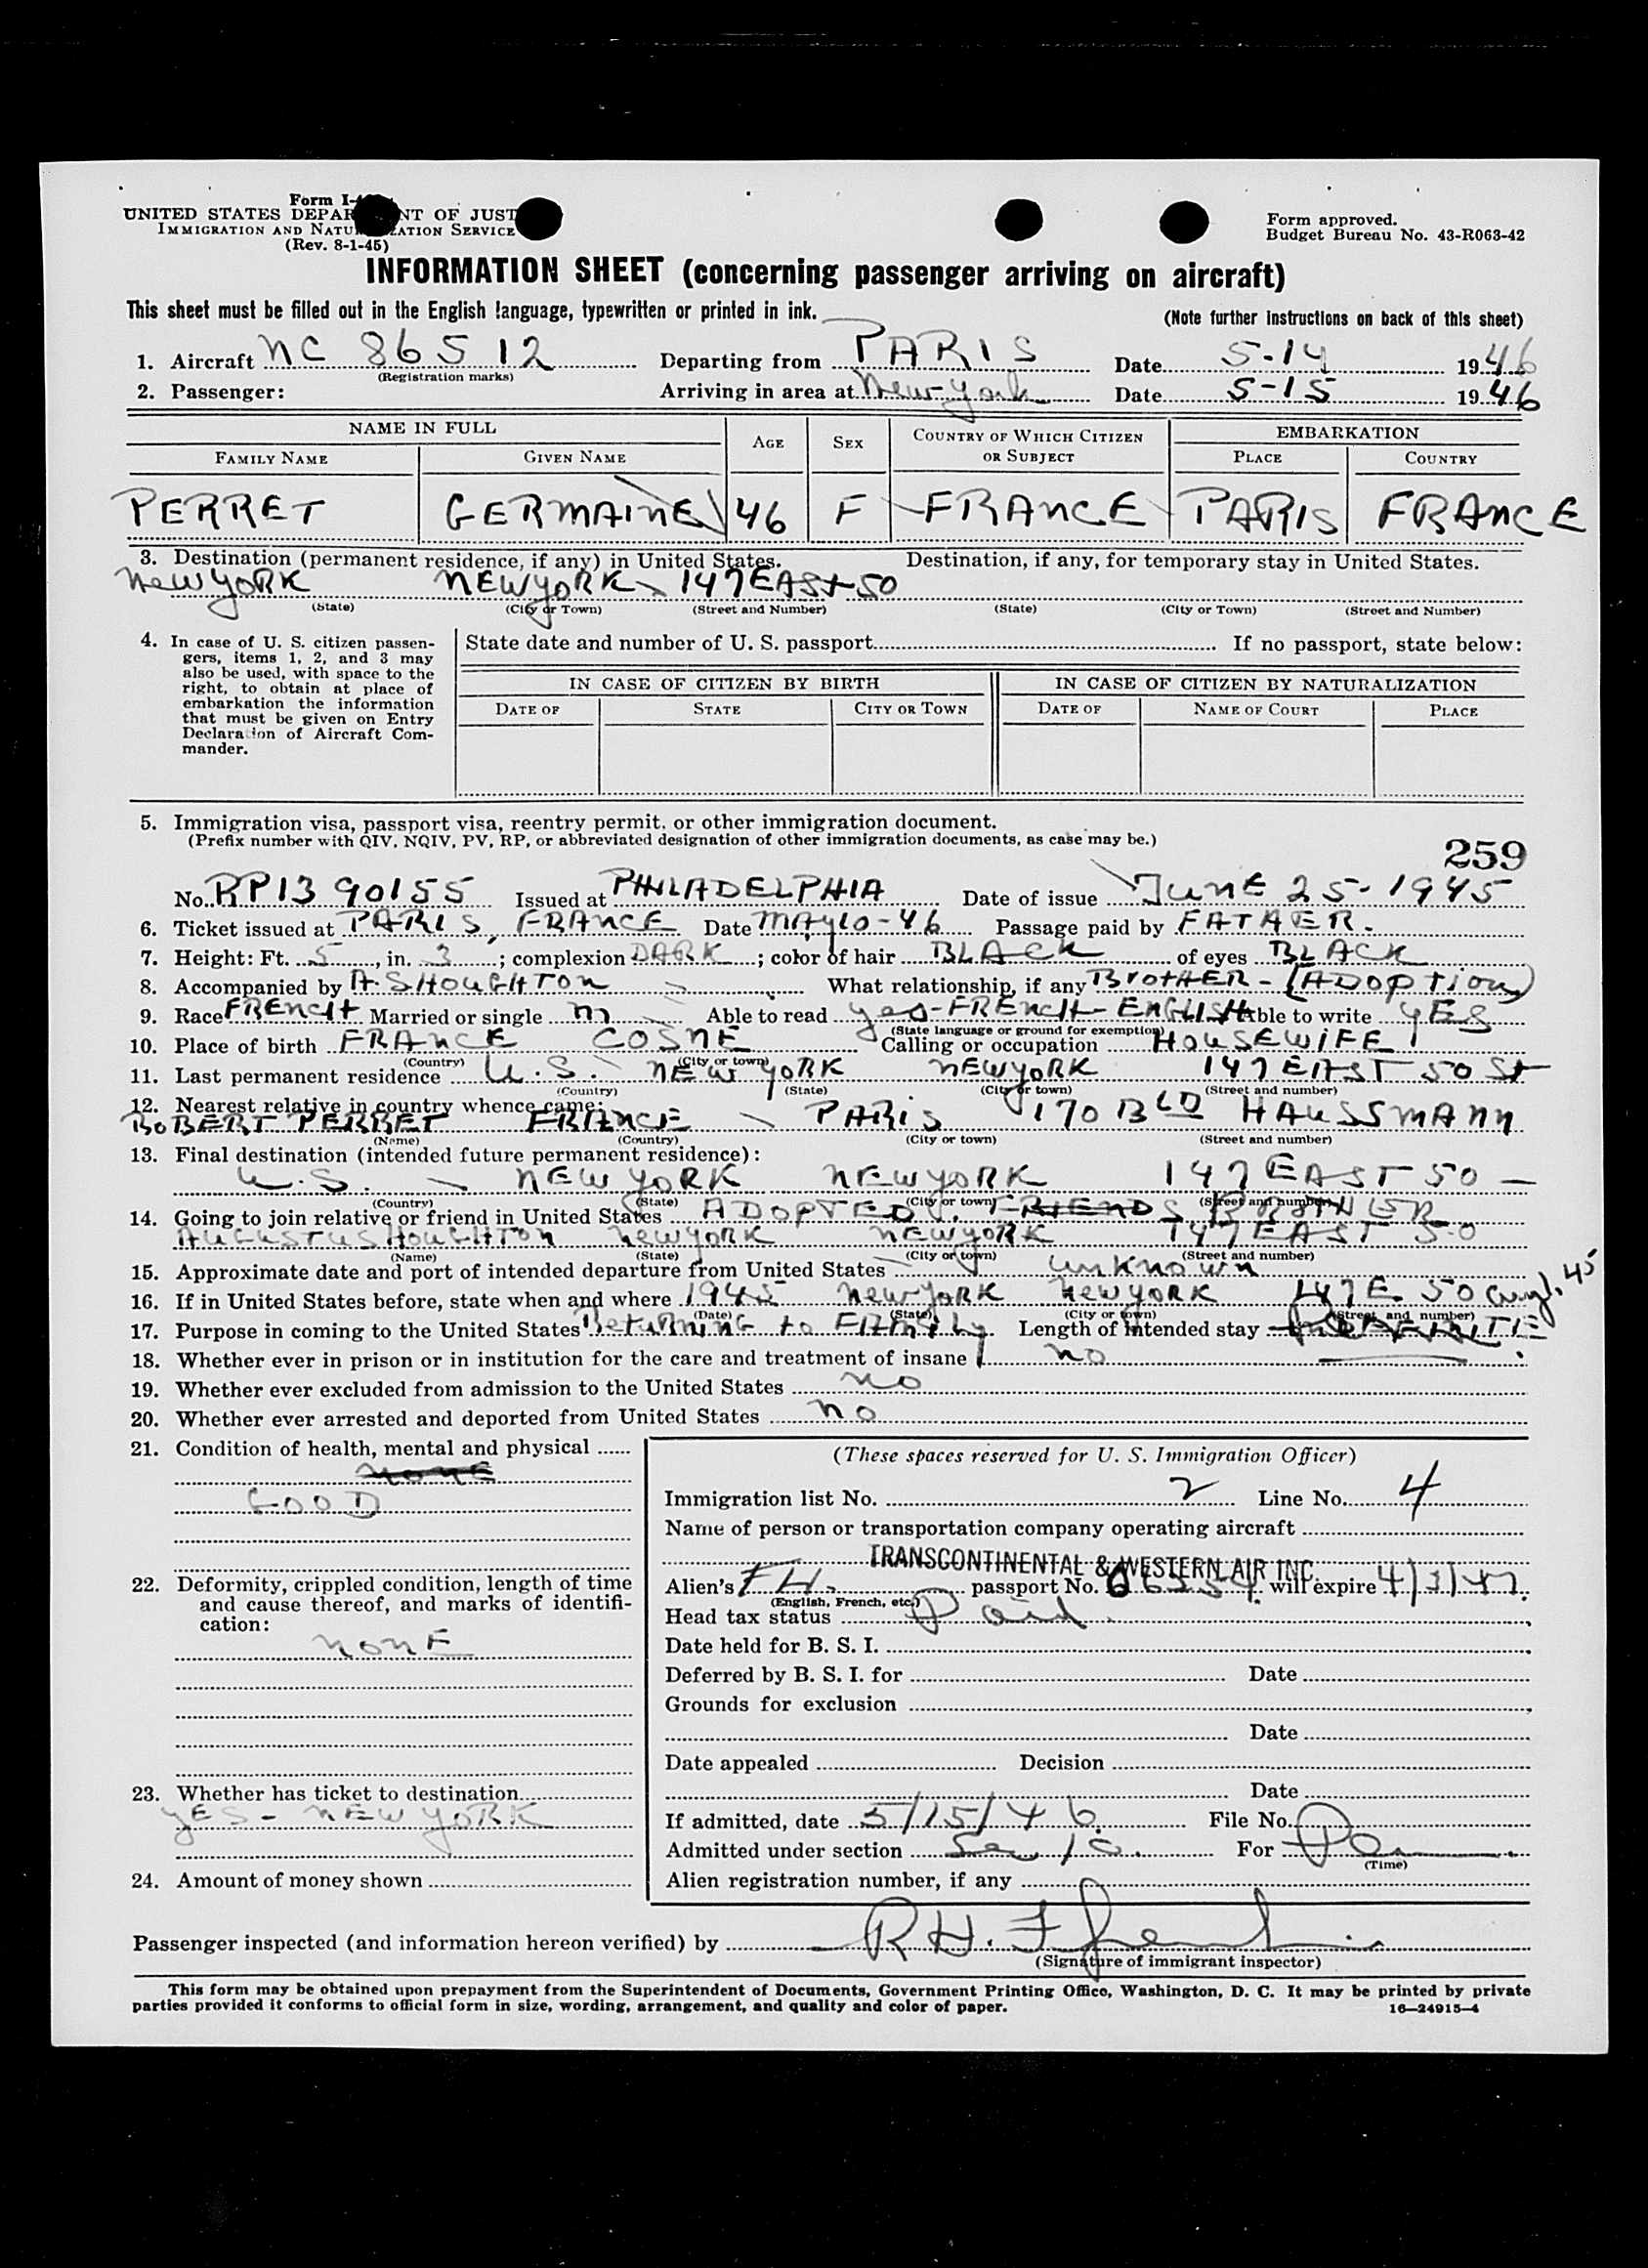 Form I-4
UNITED STATES DEPAR NT OF JUST
IMMIGRATION AND NATU ZATION SERVICE
(Rev. 8-1-45)
Form approved.
Budget Bureau No. 43-R063-42
INFORMATION SHEET (concerning passenger arriving on aircraft)
This sheet must be filled out in the English language, typewritten or printed in ink.
(Note further instructions on back of this sheet)
1. Aircraft NC 86512 Departing from PARIS Date 5-14 1946
(Registration marks)
2. Passenger: Arriving in area at New York Date 5-15 1946
NAME IN FULL AGE SEX COUNTRY OF WHICH CITIZEN OR SUBJECT EMBARKATION
FAMILY NAME GIVEN NAME PLACE COUNTRY
PERRET GERMAINE 46 F FRANCE PARIS FRANCE
3. Destination (permanent residence, if any) in United States. Destination, if any, for temporary stay in United States.
New YORK NEW YORK 147 EAST 50
(State) (City or Town) (Street and Number) (State) (City or Town) (Street and Number)
4. In case of U. S. citizen passen-
gers, items 1, 2, and 3 may
also be used, with space to the
right, to obtain at place of
embarkation the information
that must be given on Entry
Declaration of Aircraft Com-
mander.
State date and number of U. S. passport If no passport, state below:
IN CASE OF CITIZEN BY BIRTH IN CASE OF CITIZEN BY NATURALIZATION
DATE OF STATE CITY OR TOWN DATE OF NAME OF COURT PLACE
5. Immigration visa, passport visa, reentry permit, or other immigration document.
(Prefix number with QIV, NQIV, PV, RP, or abbreviated designation of other immigration documents, as case may be.)
259
No. RP13 90155 Issued at PHILADELPHIA Date of issue JUNE 25-1945
6. Ticket issued at PARIS, FRANCE Date MAY 10-46 Passage paid by FATHER.
7. Height: Ft. 5, in. 3; complexion DARK; color of hair BLACK of eyes BLACK
8. Accompanied by A. S HOUGHTON What relationship, if any BROTHER - (ADOPTION)
9. Race FRENCH Married or single M Able to read yes - FRENCH - ENGLISH Able to write YES
(State language or ground for exemption)
10. Place of birth FRANCE COSNE Calling or occupation HOUSEWIFE
(Country) (City or town)
11. Last permanent residence U.S. NEW YORK NEW YORK 147 EAST 50 St
(Country) (State) (City or town) (Street and number)
12. Nearest relative in country whence came:
ROBERT PERRET FRANCE PARIS 170 BLD HAUSSMANN
(Name) (Country) (City or town) (Street and number)
13. Final destination (intended future permanent residence):
U.S. NEW YORK NEW YORK 147 EAST 50
(Country) (State) (City or town) (Street and number)
14. Going to join relative or friend in United States ADOPTED FRIENDS BROTHER
AUGUSTUS HOUGHTON NEW YORK NEW YORK 147 EAST 50
(Name) (State) (City or town) (Street and number)
15. Approximate date and port of intended departure from United States UNKNOWN
16. If in United States before, state when and where 1945 New York New YORK 147 E. 50 45
(Date) (State) (City or town) (Street and number)
17. Purpose in coming to the United States Returning to Family Length of intended stay INDEFINITE
18. Whether ever in prison or in institution for the care and treatment of insane NO
19. Whether ever excluded from admission to the United States NO
20. Whether ever arrested and deported from United States NO
21. Condition of health, mental and physical
NONE
GOOD
22. Deformity, crippled condition, length of time
and cause thereof, and marks of identifi-
cation:
NONE
23. Whether has ticket to destination
YES - NEW YORK
24. Amount of money shown
(These spaces reserved for U. S. Immigration Officer)
Immigration list No. 2 Line No. 4
Name of person or transportation company operating aircraft
TRANSCONTINENTAL & WESTERN AIR INC.
Alien's passport No. will expire 4/3/47.
(English, French, etc.)
Head tax status Paid.
Date held for B. S. I.
Deferred by B. S. I. for Date
Grounds for exclusion
Date
Date appealed Decision
Date
If admitted, date 5/15/46. File No.
Admitted under section For
(Time)
Alien registration number, if any
Passenger inspected (and information hereon verified) by R H.
(Signature of immigrant inspector)
This form may be obtained upon prepayment from the Superintendent of Documents, Government Printing Office, Washington, D. C. It may be printed by private
parties provided it conforms to official form in size, wording, arrangement, and quality and color of paper. 16—24915-4